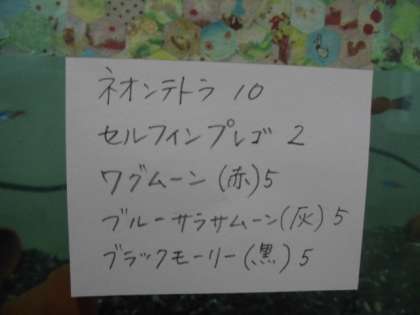 ネオンテトラ 10
セルフィンプレゴ 2
ワグムーン (赤)5
ブルーサラサムーン(灰) 5
ブラックモーリー(黒) 5